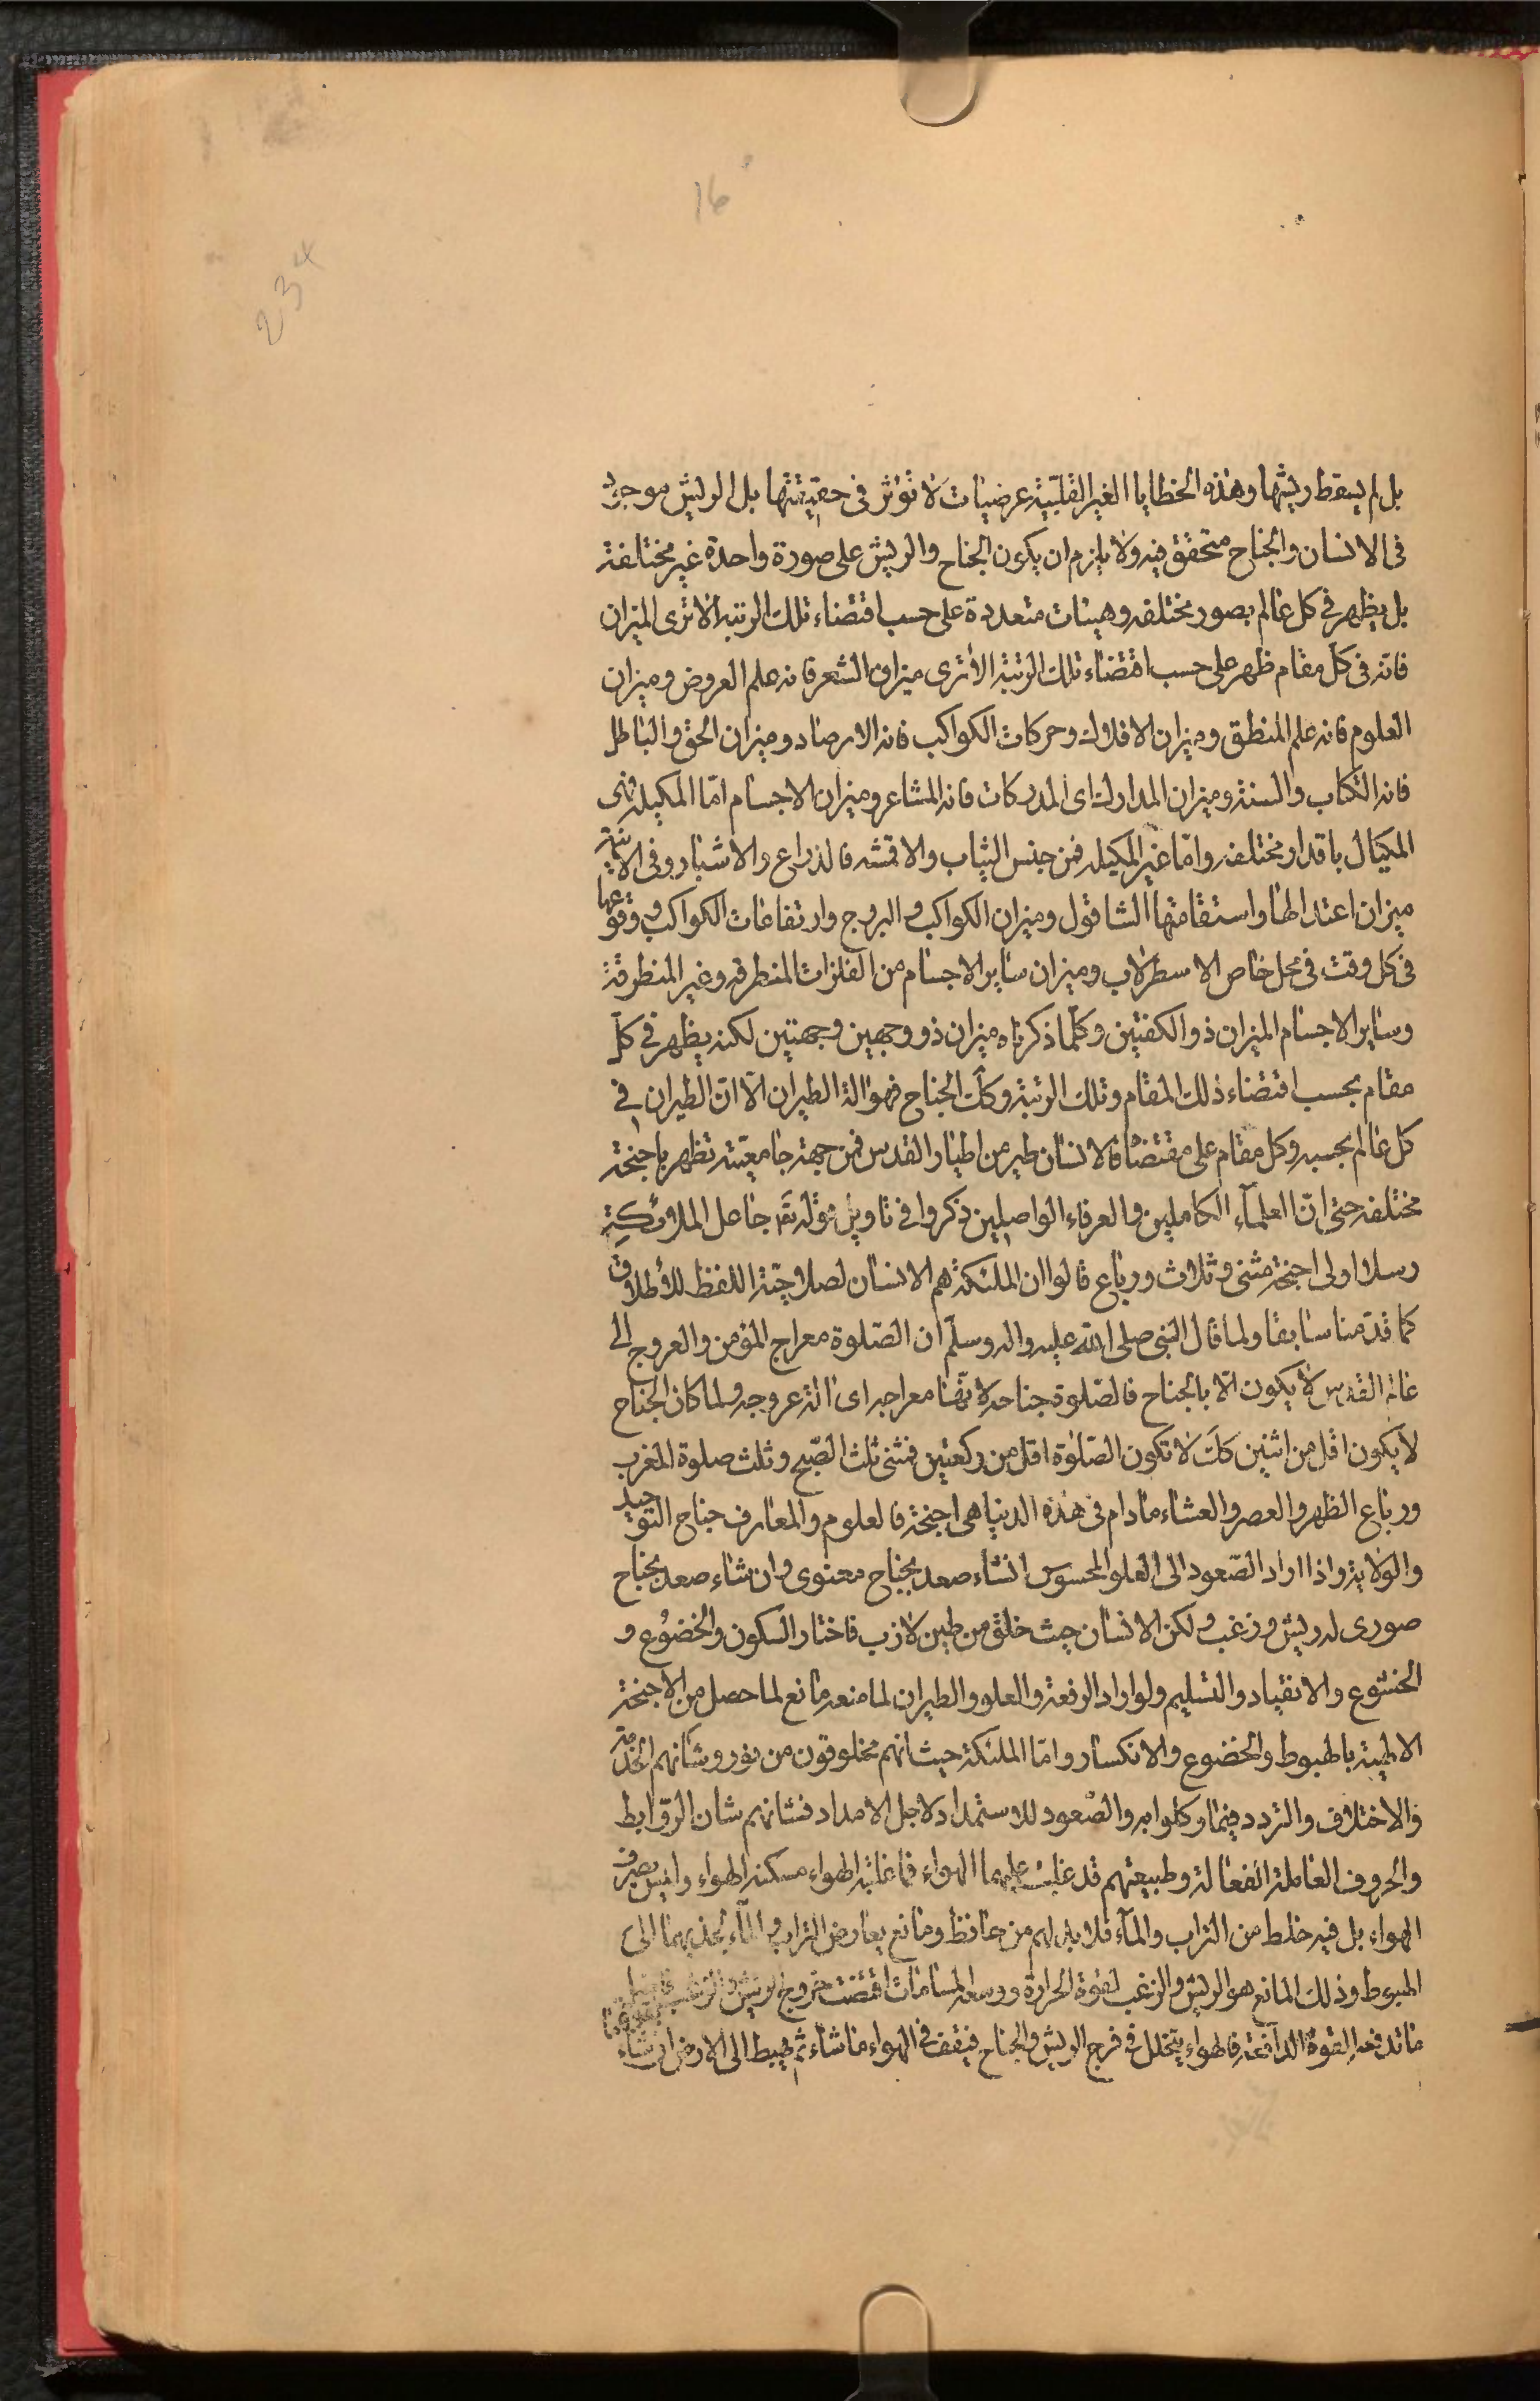 16
234
بل لم يسقط ريشها وهذه الخطايا الغير القلبية عرضيات لا تؤثر في حقيقتها بل الريش موجود
في الانسان والجناح متحقق فيه ولا يلزم ان يكون الجناح والريش على صورة واحدة غير مختلفة
بل يظهر في كل عالم بصور مختلفه وهيئات متعددة على حسب اقتضاء تلك الرتبه الا ترى الميزان
فانه في كل مقام ظهر على حسب اقتضاء تلك الرتبة الا ترى ميزان الشعر فانه علم العروض وميزان
العلوم فانه علم المنطق وميزان الافلاك وحركات الكواكب فانه الارصاد وميزان الحق والباطل
فانه الكتاب والسنة وميزان المدارك اى المدركات فانه المشاعر وميزان الاجسام امّا المكيله فهى
المكيال باقدار مختلفه وامّا غير المكيله فمن جنس الثياب والاقمشه فالذراع والاشبار وفى الابنية
ميزان اعتدالها واستقامتها الشاقول وميزان الكواكب والبروج وارتفاعات الكواكب ووقوعها
في كل وقت في محل خاص الاسطرلاب وميزان ساير الاجسام من الفلزات المنطرقه وغير المنطرقة
وساير الاجسام الميزان ذو الكفتين وكلما ذكرناه ميزان ذو وجهين وجهتين لكنه يظهر في كل
مقام بحسب اقتضاء ذلك المقام وتلك الرتبة وكك الجناح فهو الة الطيران الّا انّ الطيران في
كل عالم بحسبه وكل مقام على مقتضاه فالانسان طير من اطيار القدس فمن جهة جامعيّته تظهر باجنحة
مختلفه حتى انّ العلمآء الكاملين والعرفاء الواصلين ذكروا في تاويل قوله تع جاعل الملائكة
رسلا اولى اجنحة مثنى وثلاث ورباع قالوا ان الملئكة هم الانسان لصلاحيّة اللفظ للاطلاق
كما قدّمنا سابقا ولما قال النبى صلى الله عليه واله وسلّم ان الصّلوة معراج المؤمن والعروج الى
عالم القدس لا يكون الّا بالجناح فالصّلوة جناحه لانّها معراجه اى الة عروجه ولما كان الجناح
لا يكون اقل من اثنين كك لا تكون الصّلوة اقل من ركعتين فمثنى ثلث الصّبح وثلث صلوة المغرب
ورباع الظهر والعصر والعشاء مادام في هذه الدنيا هى اجنحة فالعلوم والمعارف جناح التوحيد
والولاية واذا اراد الصّعود الى العلو المحسوس انشاء صعد بجناح معنوى وان شاء صعد بجناح
صورى له ريش وزغب ولكن الانسان حيث خلق من طين لازب فاختار السكون والخضوع و
الخشوع والانقياد والتسليم ولو اراد الرفعة والعلو والطيران لما منعه مانع لما حصل من الاجنحة
الالهية بالهبوط والخضوع والانكسار وامّا الملئكة حيث انهم مخلوقون من نور وشانهم الخدمة
والاختلاف والتردد فيما وكلوا به والصّعود للاستمداد لاجل الامداد فشانهم شان الروابط
والحروف العاملة الفعالة وطبيعتهم قد غلبت عليهما الهواء فما غلبة الهواء مسكنه الهواء وليس بصرف
الهواء بل فيه خلط من التراب والمآء فلا بد لهم من حافظ ومانع يعارض التراب والمآء بجذبهما الى
الهبوط وذلك المانع هو الريش والزغب لقوة الحرارة ووسعة المسامات اقتضت خروج الريش والزغب
ما تدفعه القوة الدافعة فالهواء يتخلل في فرج الريش والجناح فيقف في الهواء ما شاء ثم يهبط الى الارض ان شاء